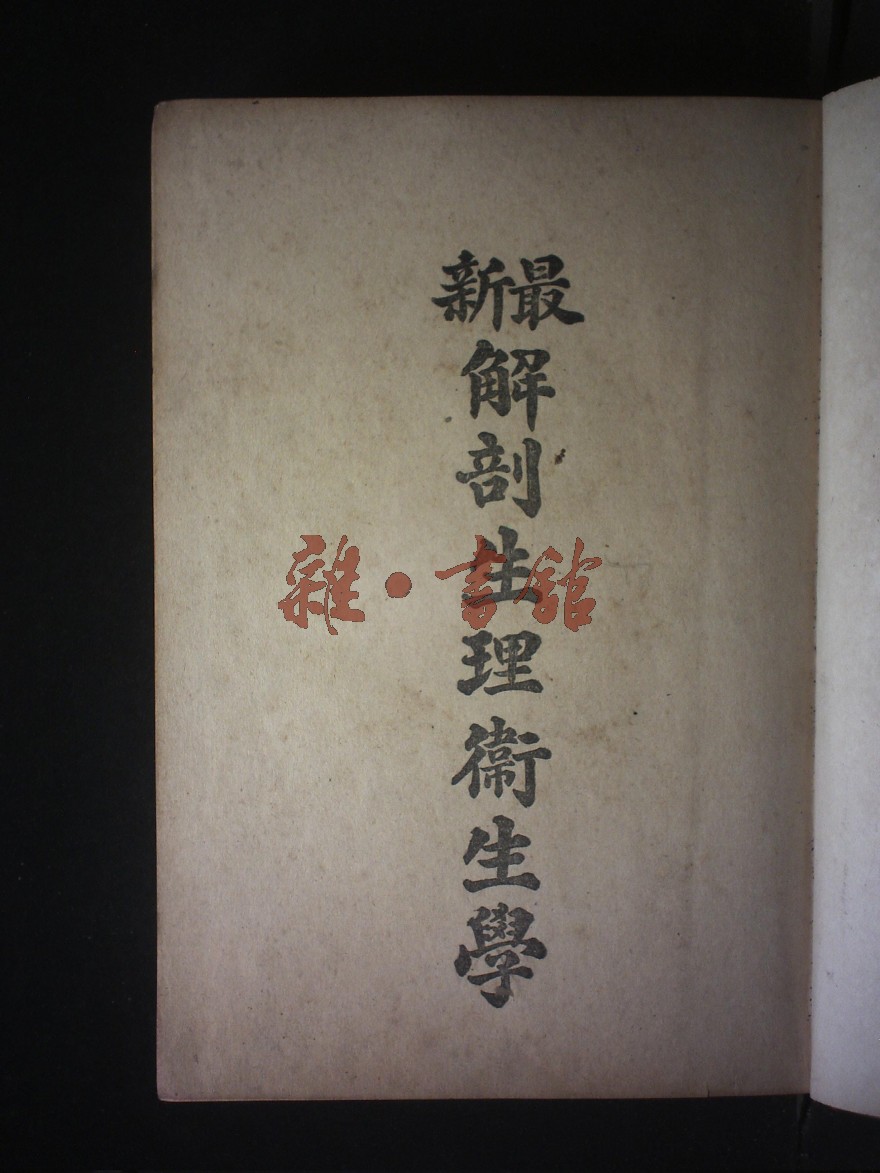 最新
解剖生理衞生學
雜·書館